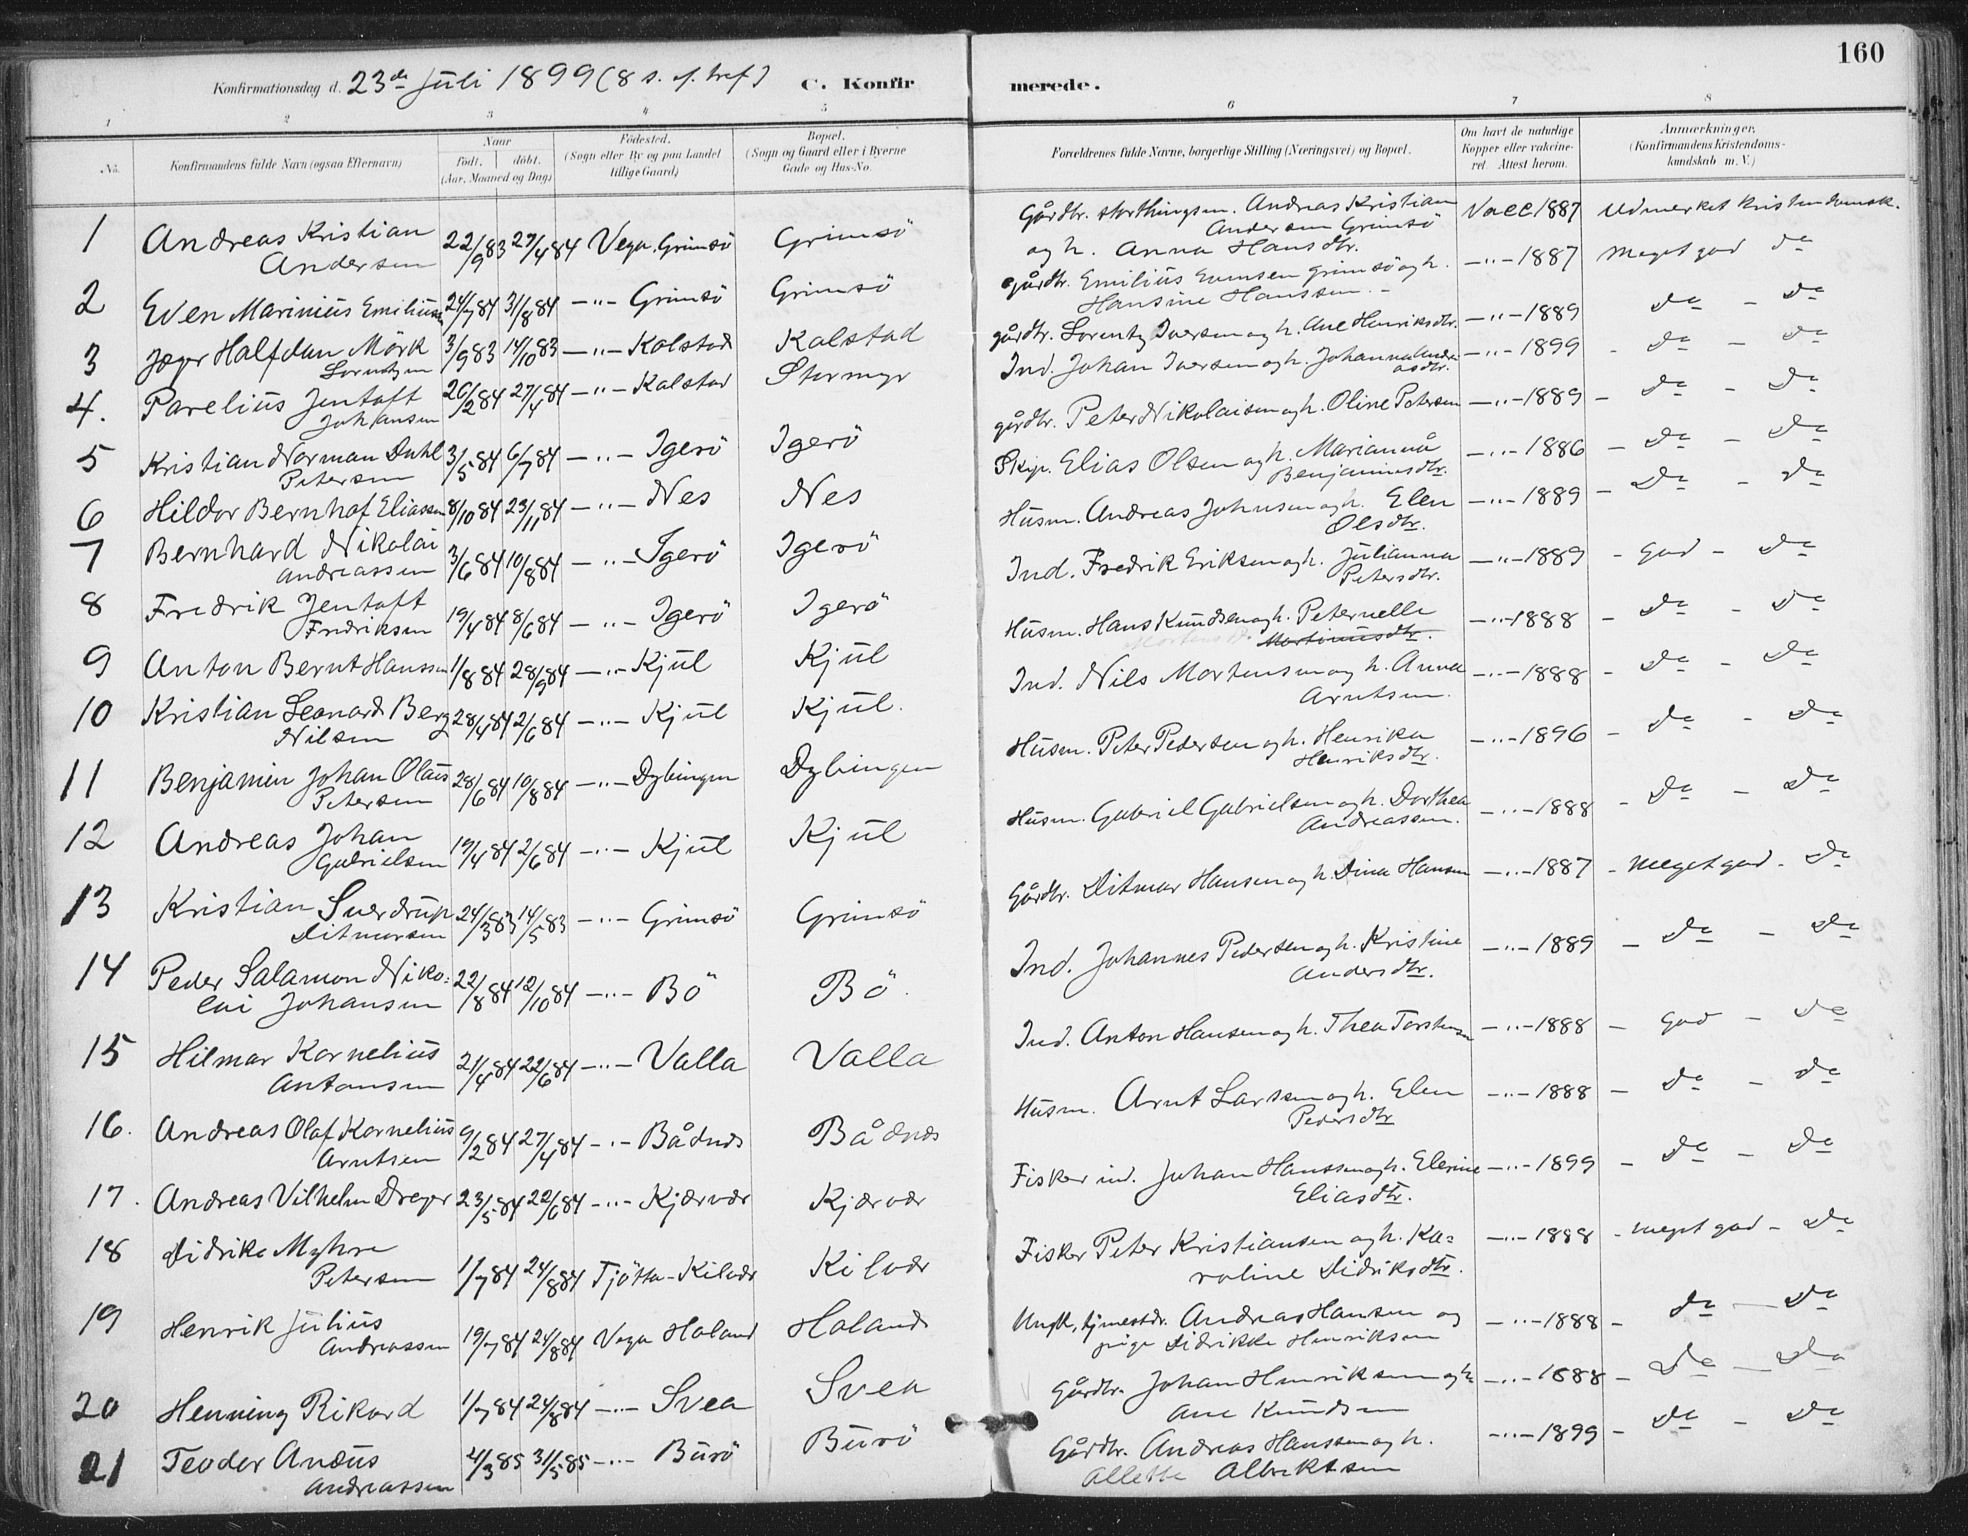 160
Konfirmationsdag d. 23de Juli 1899 (8 s. ef. tref.) C. Konfirmerede.
1 2 3 4 5 6 7 8
No. Konfirmandens fulde Navn (ogsaa Efternavn) Naar født, døbt. (Aar, Maaned og Dag) Fødested. (Sogn eller By og paa Landet tillige Gaard) Bopæl. (Sogn og Gaard eller i Byerne Gade og Hus-No. Forældrenes fulde Navne, borgerlige Stilling (Næringsvei) og Bopæl. Om havt de naturlige Kopper eller vakcineret. Attest herom. Anmærkninger. (Konfirmandens Kristendomskundskab m. V.)
1 Andreas Kristian Andersen 22/9 83 27/4 84 Vega. Grimsö Grimsö Gårdbr. storthingsm. Andreas Kristian Andersen Grimsö og h. Anna Hansdtr. Vacc 1887 Udmerket kristendomsk.
2 Even Marinius Emiliusen 24/7 84 31/8 84 -"- Grimsö Grimsö gårdbr. Emilius Evensen Grimsö og h. Hansine Hanssen. -"- 1887 Meget god do
3 Jæger Halfdan Mörk Lorentzen 3/9 83 14/10 83 -"- Kolstad Kolstad gårdbr. Lorentz Iversen og h. Ane Henriksdtr. -"- 1889 do - do
4. Parelius Jentoft Johansen 26/2 84 27/4 84 -"- Kolstad Stormyr Ind. Johan Iversen og h. Johanna Andreasdtr. -"- 1899 - do - do
5 Kristian Norman Dahl Petersen 3/5 84 6/7 84 -"- Igerö Igerö gårdbr. Peter Nikolaisen og h. Oline Petersen -"- 1889 - do - do
6 Hildor Bernhof Eliassen 8/10 84 23/11 84 -"- Nes Nes Skip. Elias Olsen og h. Marianna Benjaminsdtr. -"- 1886 - do - do
7 Bernhard Nikolai Andreassen 3/6 84 10/8 84 -"- Igerö Igerö Husm. Andreas Johnsen og h. Elen Olsdtr. -"- 1889 - do - do
8 Fredrik Jentoft Fredriksen 19/4 84 8/6 84 -"- Igerö Igerö Ind. Fredrik Eriksen og h. Julianna Petersdtr. -"- 1889 - god - do
9 Anton Bernt Hanssen 1/8 84 28/9 84 -"- Kjul Kjul Husm. Hans Knudsen og h. Peternelle Mortinusdtr. -"- 1888 - do - do
10 Kristian Leonard Berg Nilsen 28/4 84 2/6 84 -"- Kjul Kjul. Ind. Nils Mortensen og h. Anna Arntsen. -"- 1888 - do - do
11 Benjamin Johan Olaus Petersen 28/6 84 10/8 84 -"- Dybingen Dybingen Husm. Peter Pedersen og h. Henrika Henriksdtr. -"- 1896 - do - do
12 Andreas Johan Gabrielsen 19/4 84 2/6 84 -"- Kjul Kjul Husm. Gabriel Gabrielsen og h. Dorthea Andreassen. -"- 1888 - do - do
13 Kristian Sverdrup Ditmarsen 24/3 83 14/5 83 -"- Grimsö Grimsö Gårdbr. Ditmar Hansen og h. Dina Hansen -"- 1887 - Meget god - do
14 Peder Salamon Nikolai Johansen 22/8 84 12/10 84 -"- Bö Bö. Ind. Johannes Pedersen og h. Kristine Andersdtr. -"- 1889 - do - do
15 Hilmar Kornelius Antonsen 21/4 84 22/6 84 -"- Valla Valla Ind. Anton Hansen og h. Thea Torstensen -"- 1888 - God - do
16. Andreas Olaf Kornelius Arntsen 9/2 84 27/4 84 -"- Bådnes Bådnes Husm. Arnt Larssen og h. Elen Pedersdtr -"- 1888 - do - do
17. Andreas Vilhelm Dreyer 23/5 84 22/6 84 -"- Kjærvær Kjærvær Fisker ind. Johan Hanssen og h. Elerine Eliasdtr. -"- 1899 - do - do
18 Didrike Myhre Petersen 1/7 84 24/8 84 Tjötta - Kilvær Kilvær Fisker Peter Kristiansen og h. Karoline Didriksdtr. -"- 1888 - Meget god - do
19 Henrik Julius Andreassen 19/7 84 24/8 84 Vega Holand Holand Ungk., tjenestdr. Andreas Hansen og pige Didrikke Henriksen -"- 1888 - do - do
20 Henning Rikard 1/7 84 24/8 84 -"- Svea Svea Gårdbr. Johan Henriksen og h. Ane Knudsen -"- 1888 - do - do
21 Teodor Anæus Andreassen 4/3 85 31/5 85 -"- Burö Burö Gårdbr. Andreas Hanssen og h. Allette Albrektsen -"- 1899 - do - do